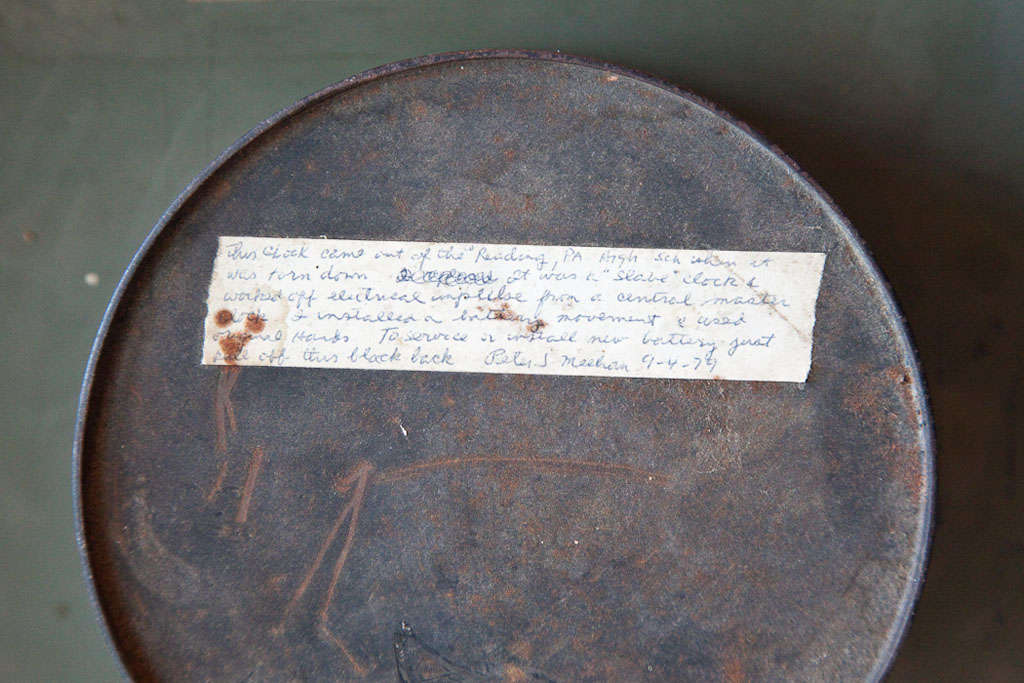 This Clock came out of the "Reading, PA High Sch when it
was torn down. It was a "Slave" clock &
worked off electrical impulse from a central master
clock I installed a battery movement & used
original Hands To service or install new battery just
off this black back Peter J Meehan 9-4-79